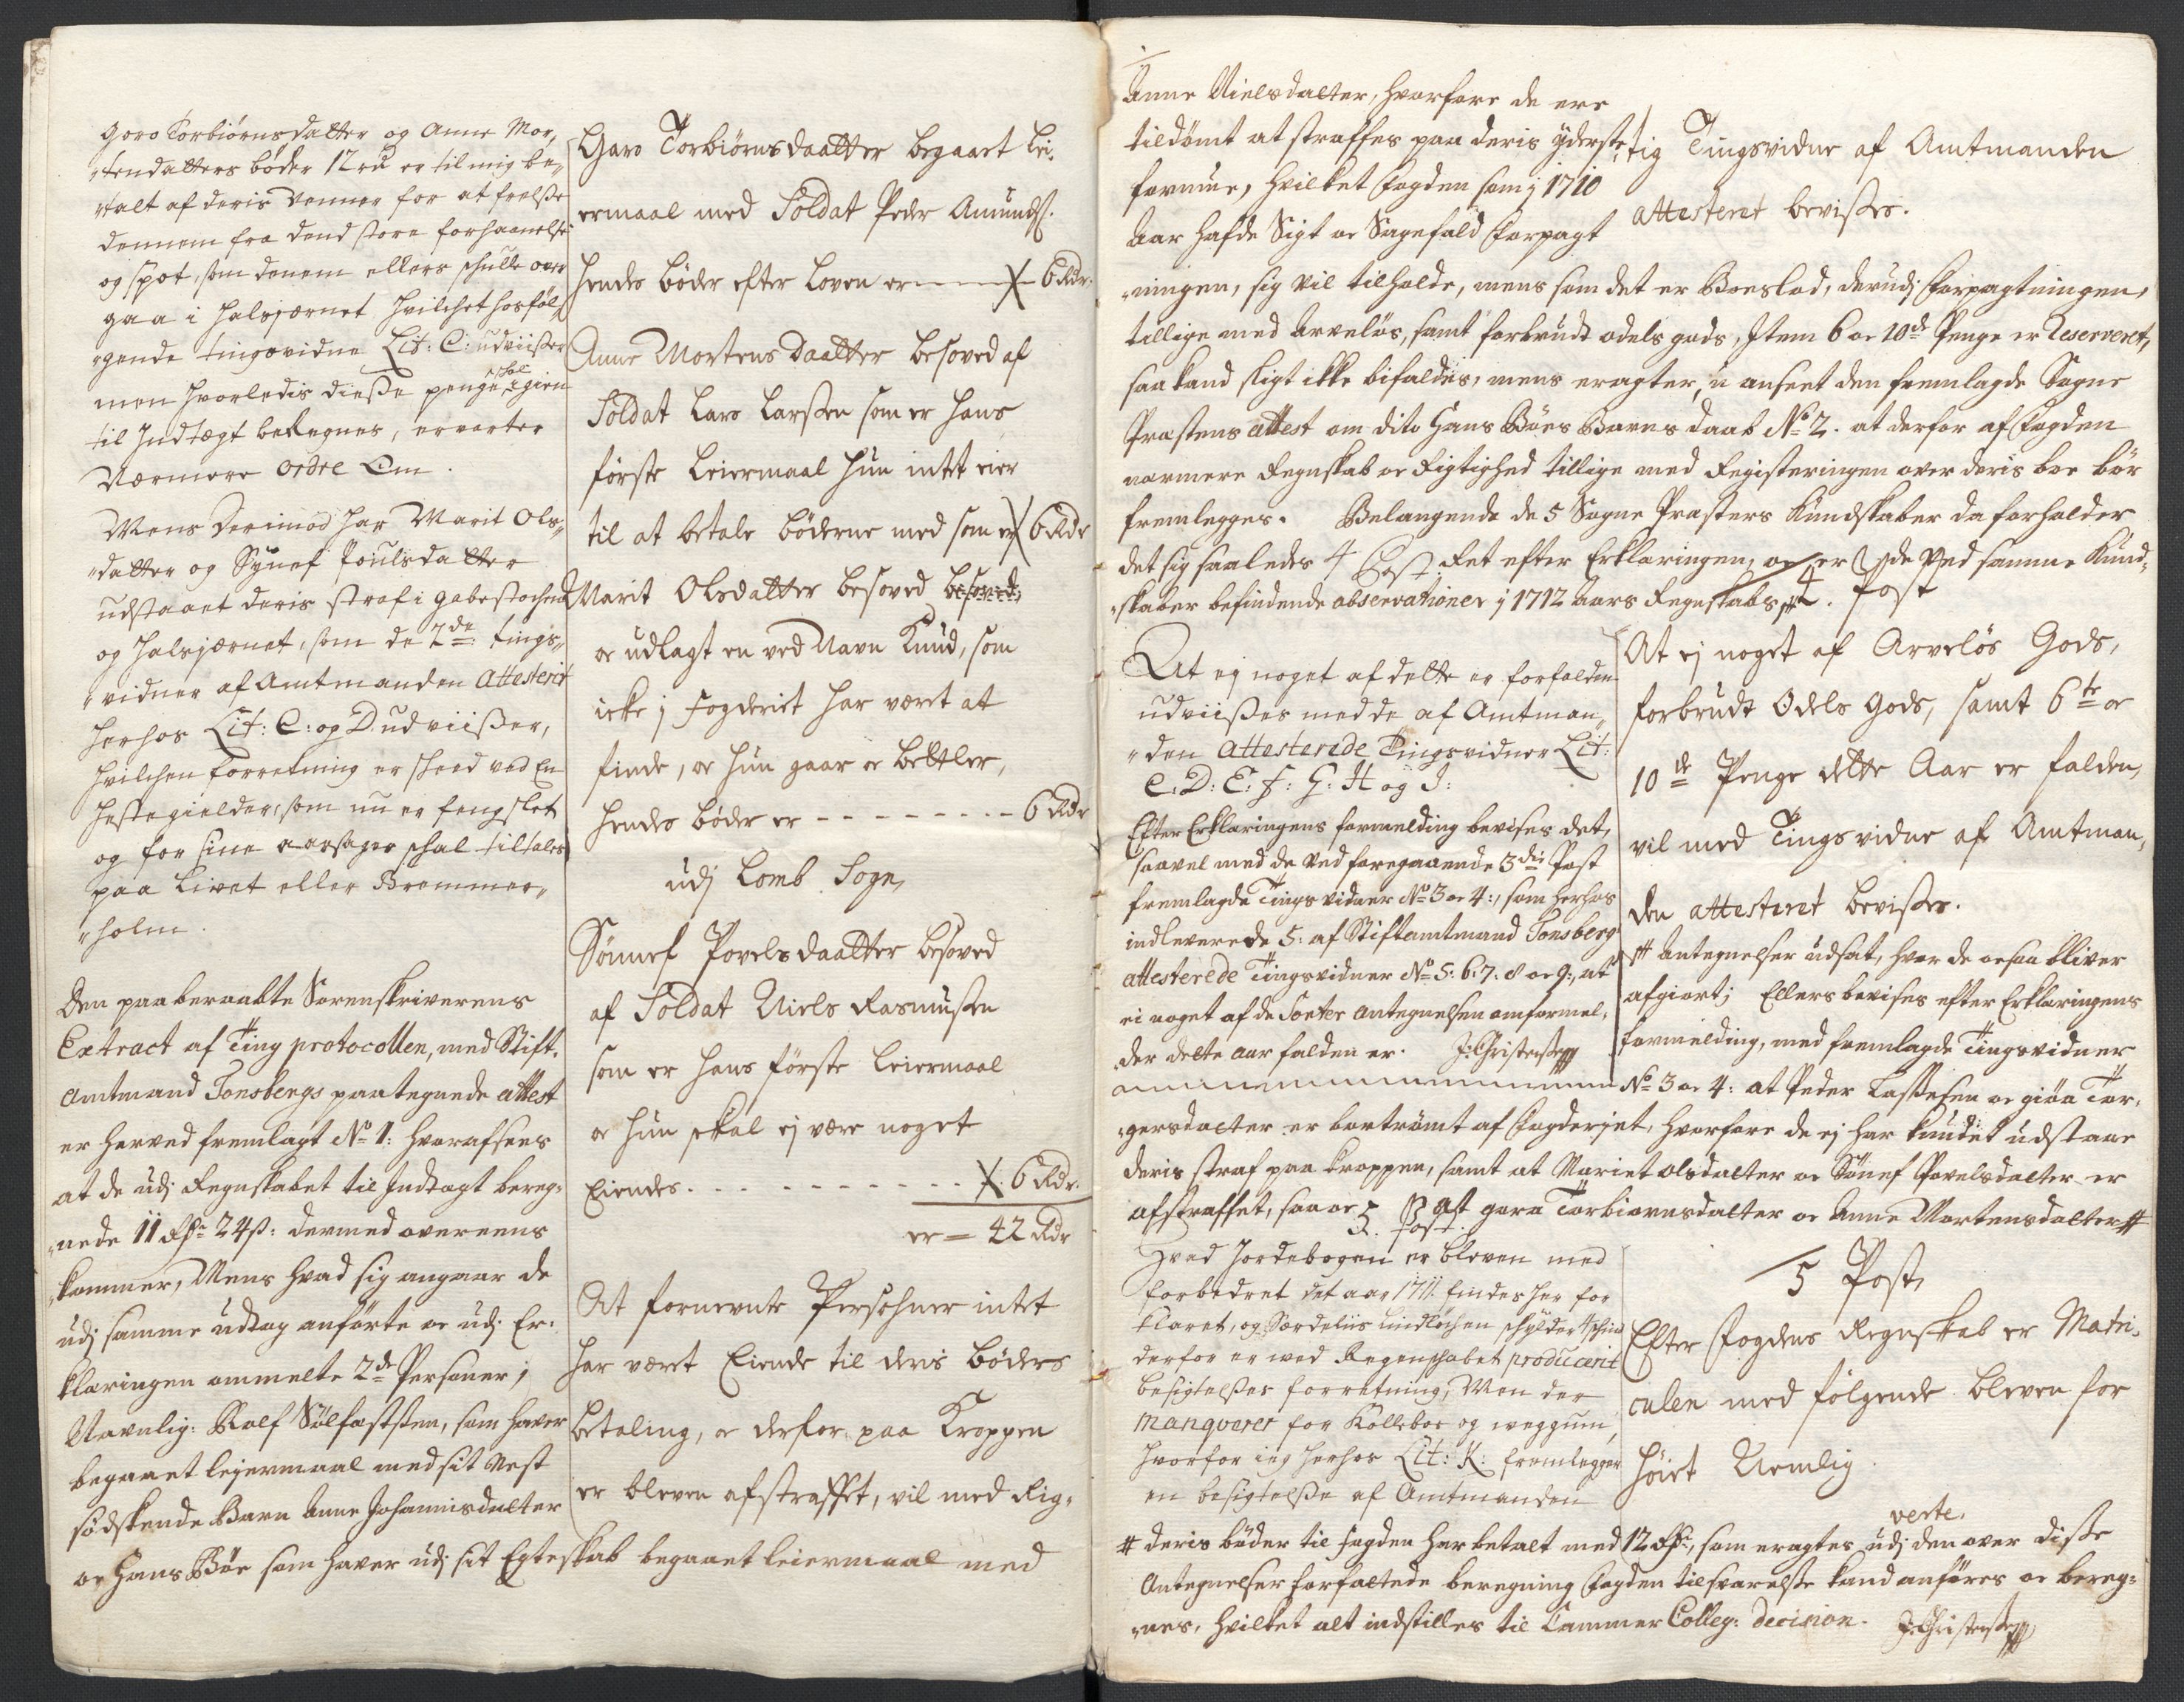 Goro Torbiørnsdatter og Anne Mor,,
,,tensdatters bøder 12 rd er til mig be,,
,,talt af deris Venner for at frelße
dennem fra dend store forhaanelse
og spot, som denem ellers skulle over
gaa i Halsjærnet hvilchet hosføl,,
,,gende tingsvidne Lit: C: udviißer
men hvorledis dieße penge schal igien
til Indtegt beregnes, erwarter
Nærmere ordre Om.
Mens derimod har Marit Ols,,
,,datter og Synef Poulsdatter
udstaaet deris straf i gabestochen
og Halsjærnet, som de 2de tings,,
,,vidner af Amtmanden Attesterit
herhos Lit: C: og D udviißer,
hvilchen forretning er scheed ved En
Hestegielder, som nu er fengslet
og for sine aarsager schal tiltales
paa Livet eller Bremmer,,
,,holm.
Den paaberaabte Sorenskriverens
Extract af Ting protocollen, med Stift.
Amtmand Tonsbergs paategnede attest
er herved fremlagt No 1: hvoraf sees
at de udj Regnskabet til Indtægt bereg,
,,nede 11 Rdr 24 ß: dermed overeens
,,kommer, Mens hvad sig angaar de
udj samme udtog anførte oc udj Er,
klaringen ommelte 2de Personer;
Navnlig: Rolf Sølfæstsen, som haver
begaaet lejermaal med sit Nest
sødskende Barn Anne Johannisdatter
oc Hans Bøe som haver udj sit Egteskab begaaet leiermaal med
Garo Torbiørnsdaatter begaaet Lei,
ermaal med Soldat Peder Amunds.
hendes bøder efter Loven er - - - - 6 Rdr.
Anne Mortensdaatter besoved af
Soldat Lars Larßen som er hans
første Leiermaal hun intet eier
til at betale bøderne med som er 6 Rdr
Marit Olsdatter besoved besoved,
oc udlagt en ved Navn Knud, som
icke j Fogderiet har været at
finde, oc hun gaar oc bettler,
hendes bøder er - - - - - - - - - 6 Rdr
udj Lomb Sogn,
Sønnef Povelsdaatter besoved
af Soldat Niels Rasmußen
som er hans første Leiermaal
oc hun skal ej være noget
Eiendes. - - - - - - - - - - 6 Rdr.
er = 42 Rdr
At fornevnte Persohner intet
har været Eiende til deris bøders
betaling, oc derfor paa Kroppen
er bleven afstraffet, vil med Rig,
Anne Nielsdatter, hvorfore de ere
tildømt at straffes paa deris yderste
formue, hvilket Fogden som j 1710
Aar hafde Sigt oc Sagefald Forpagt
,,ningen, sig vil tilholde, mens som det er Boeslod, derudj Forpagtningen,
tillige med Arveløs, samt forbrudt odels gods, Item 6 oc 10de Penge er Reserveret,
saa kand sligt ikke bifaldes, mens eragter, u anseet den fremlagde Sogne
Præstens attest om dito Hans Bøes Barns daab No 2. at derfor af Fogden
nærmere Regnskab oc Rigtighed tillige med Registeringen over deris boe bør
fremlegges. Belangende de 5 Sogne Præsters Kundskaber da forholder
det sig saaledes ret efter Erklæringen, oc er de ved samme Kund,
,,skaber befindende observationer j 1712 Aars Regnskabs #
tig Tingsvidne af Amtmanden
attesteret bevißes.
4. Post
At ej noget af dette er forfalden
udviißes med de af Amtman,,
,,den Attesterede Tingsvidner Lit:
C: D: E: F: G: H og I:
Efter Erklæringens formelding bevises det,
saavel med de ved foregaaende 3die Post
fremlagde Tings vidner No 3 oc 4:, som herhos
indleverede 5: af Stiftamtmand Tonsberg
attesterede Tingsvidner No 5: 6: 7: 8 oc 9:, at
ei noget af de Sorter antegnelsen omformel,
,,der dette Aar falden er. J: Christensen
At ej noget af Arveløs Gods,
forbrudt Odels Gods, samt 6te oc
10de Penge dette Aar er falden,
vil med Tingsvidne af Amtman,
den attesteret bevißes.
# Antegnelser udsat, hvor de ocsaa bliver
afgiort; Ellers bevises efter Erklæringens
formelding, med fremlagde Tingsvidner
No 3 oc 4: at Peder Laßesen oc giøa Tor,
,,gersdatter er bortrømt af Fogderjet, hvorfore de ej har kundet udstaae
deris straf paa kroppen, samt at Mariet Olsdatter oc Sønef Povelsdatter er
afstraffet, saa oc at gora Torbiørnsdatter oc Anne Mortensdatter #
5. Post.
Hvad Jordebogen er bleven med
forbedret det aar 1711 findes her for
klaret, og Særdeliis Lindløchen schylder 4 schin
derfor er wed Regenschabet producerit
besigtelßes forretning, Men der
manqverer for Kollebor og weggum,
hvorfor ieg herhos Lit: K: fremlegger
en besigtelße af Amtmanden
5 Post,
Efter Fogdens Regnskab er Matri,
culen med følgende bleven for
høiet Nemlig
verte.
# deris bøder til Fogden har betalt med 12 Rdr, som eragtes udj den over diße
Antegnelser forfattede beregning Fogden tilsvarelße kand anføres oc bereg,
,,nes, hvilket alt indstilles til Cammer Colleg: decision. J: Christensen